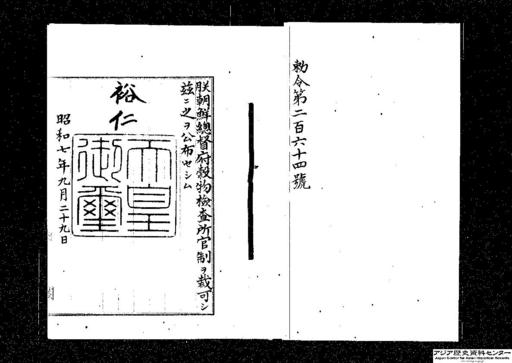 勅令第二百六十四號
朕朝鮮總督府穀物檢査所官制ヲ裁可シ
茲ニ之ヲ公布セシム
裕仁
天皇
御璽
昭和七年九月二十九日
アジア歴史資料センター
Japan Center for Asian Historical Records